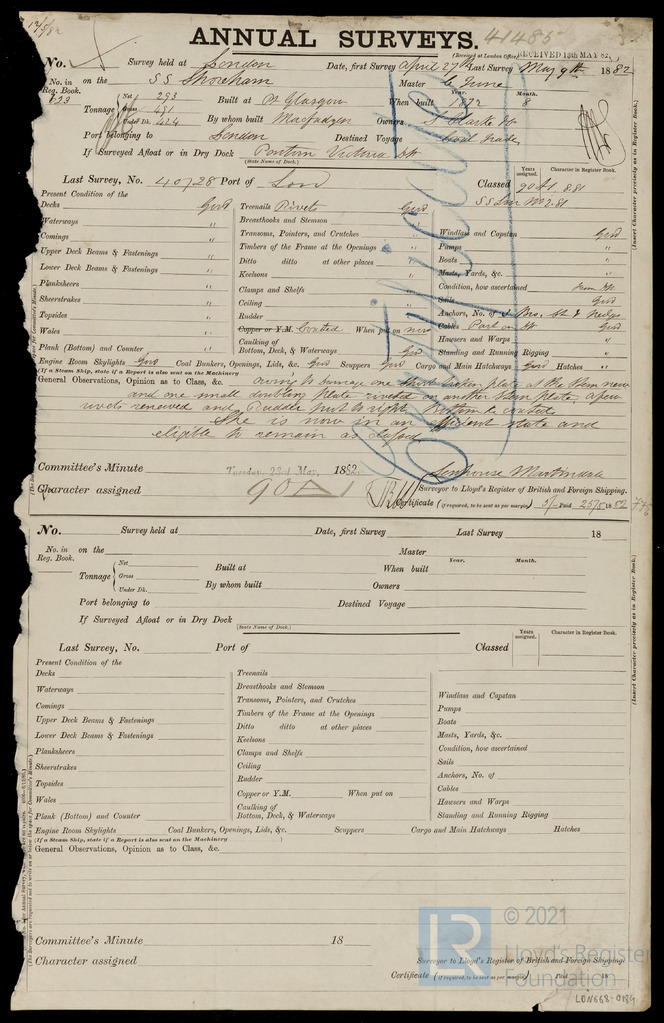 17/5/82
ANNUAL SURVEYS. 41485
(Received at London Office) RECEIVED 13th MAY 82
No. Survey held at London Date, first Survey April 27th Last Survey May 9th 1882
No. in Reg. Book. on the SS Shoreham Master
623 Tonnage Net 293 Gross 451 Under Dk. 424 Built at Pt Glasgow When built Year. 1872 Month. 8
By whom built Macfadyen Owners J Clarke
Port belonging to London Destined Voyage Coal Trade
If Surveyed Afloat or in Dry Dock Pontoon Victoria
(State Name of Dock.)
Last Survey, No. 40728 Port of Lon Classed Years assigned. Character in Register Book. 90A1 8.81
SS Lon No2.81
Present Condition of the
Decks Good
Waterways "
Comings "
Upper Deck Beams & Fastenings "
Lower Deck Beams & Fastenings "
Planksheers "
Sheerstrakes "
Topsides "
Wales "
Plank (Bottom) and Counter "
Treenails Rivets Good
Breasthooks and Stemson "
Transoms, Pointers, and Crutches "
Timbers of the Frame at the Openings "
Ditto ditto at other places "
Keelsons "
Clamps and Shelfs "
Ceiling "
Rudder "
Copper or Y.M. Coated When put on now
Caulking of
Bottom, Deck, & Waterways Good
Windlass and Capstan Good
Pumps "
Boats "
Masts, Yards, &c. "
Condition, how ascertained From Dk
Sails Good
Anchors, No. of
Cables Good
Hawsers and Warps "
Standing and Running Rigging "
Engine Room Skylights Good Coal Bunkers, Openings, Lids, &c. Good Scuppers Good Cargo and Main Hatchways Good Hatches "
(If a Steam Ship, state if a Report is also sent on the Machinery )
General Observations, Opinion as to Class, &c. Owing to damage one plate at the Stem new
and one small doubling plate riveted on another Stem plate, a few
rivets renewed and Rudder put to right, Bottom coated
She is now in an efficient state and
eligible to remain as classed
Certificate
Committee's Minute Tuesday, 23rd May, 1882
Character assigned 90A1
Senhouse Martindale
Surveyor to Lloyd's Register of British and Foreign Shipping.
Certificate (if required, to be sent as per margin) 5/- Paid 25/5 1882
(Insert Character precisely as in Register Book.)
No. Survey held at Date, first Survey Last Survey 18
No. in Reg. Book. on the Master
Tonnage Net Gross Under Dk. Built at When built Year. Month.
By whom built Owners
Port belonging to Destined Voyage
If Surveyed Afloat or in Dry Dock
(State Name of Dock.)
Last Survey, No. Port of Classed Years assigned. Character in Register Book.
Present Condition of the
Decks
Waterways
Comings
Upper Deck Beams & Fastenings
Lower Deck Beams & Fastenings
Planksheers
Sheerstrakes
Topsides
Wales
Plank (Bottom) and Counter
Treenails
Breasthooks and Stemson
Transoms, Pointers, and Crutches
Timbers of the Frame at the Openings
Ditto ditto at other places
Keelsons
Clamps and Shelfs
Ceiling
Rudder
Copper or Y.M. When put on
Caulking of
Bottom, Deck, & Waterways
Windlass and Capstan
Pumps
Boats
Masts, Yards, &c.
Condition, how ascertained
Sails
Anchors, No. of
Cables
Hawsers and Warps
Standing and Running Rigging
Engine Room Skylights Coal Bunkers, Openings, Lids, &c. Scuppers Cargo and Main Hatchways Hatches
(If a Steam Ship, state if a Report is also sent on the Machinery )
General Observations, Opinion as to Class, &c.
(Insert Character precisely as in Register Book.)
Committee's Minute 18
Character assigned
Surveyor to Lloyd's Register of British and Foreign Shipping.
Certificate (if required, to be sent as per margin) Paid 18
LR © 2021
Lloyd's Register
Foundation
LON668-0184